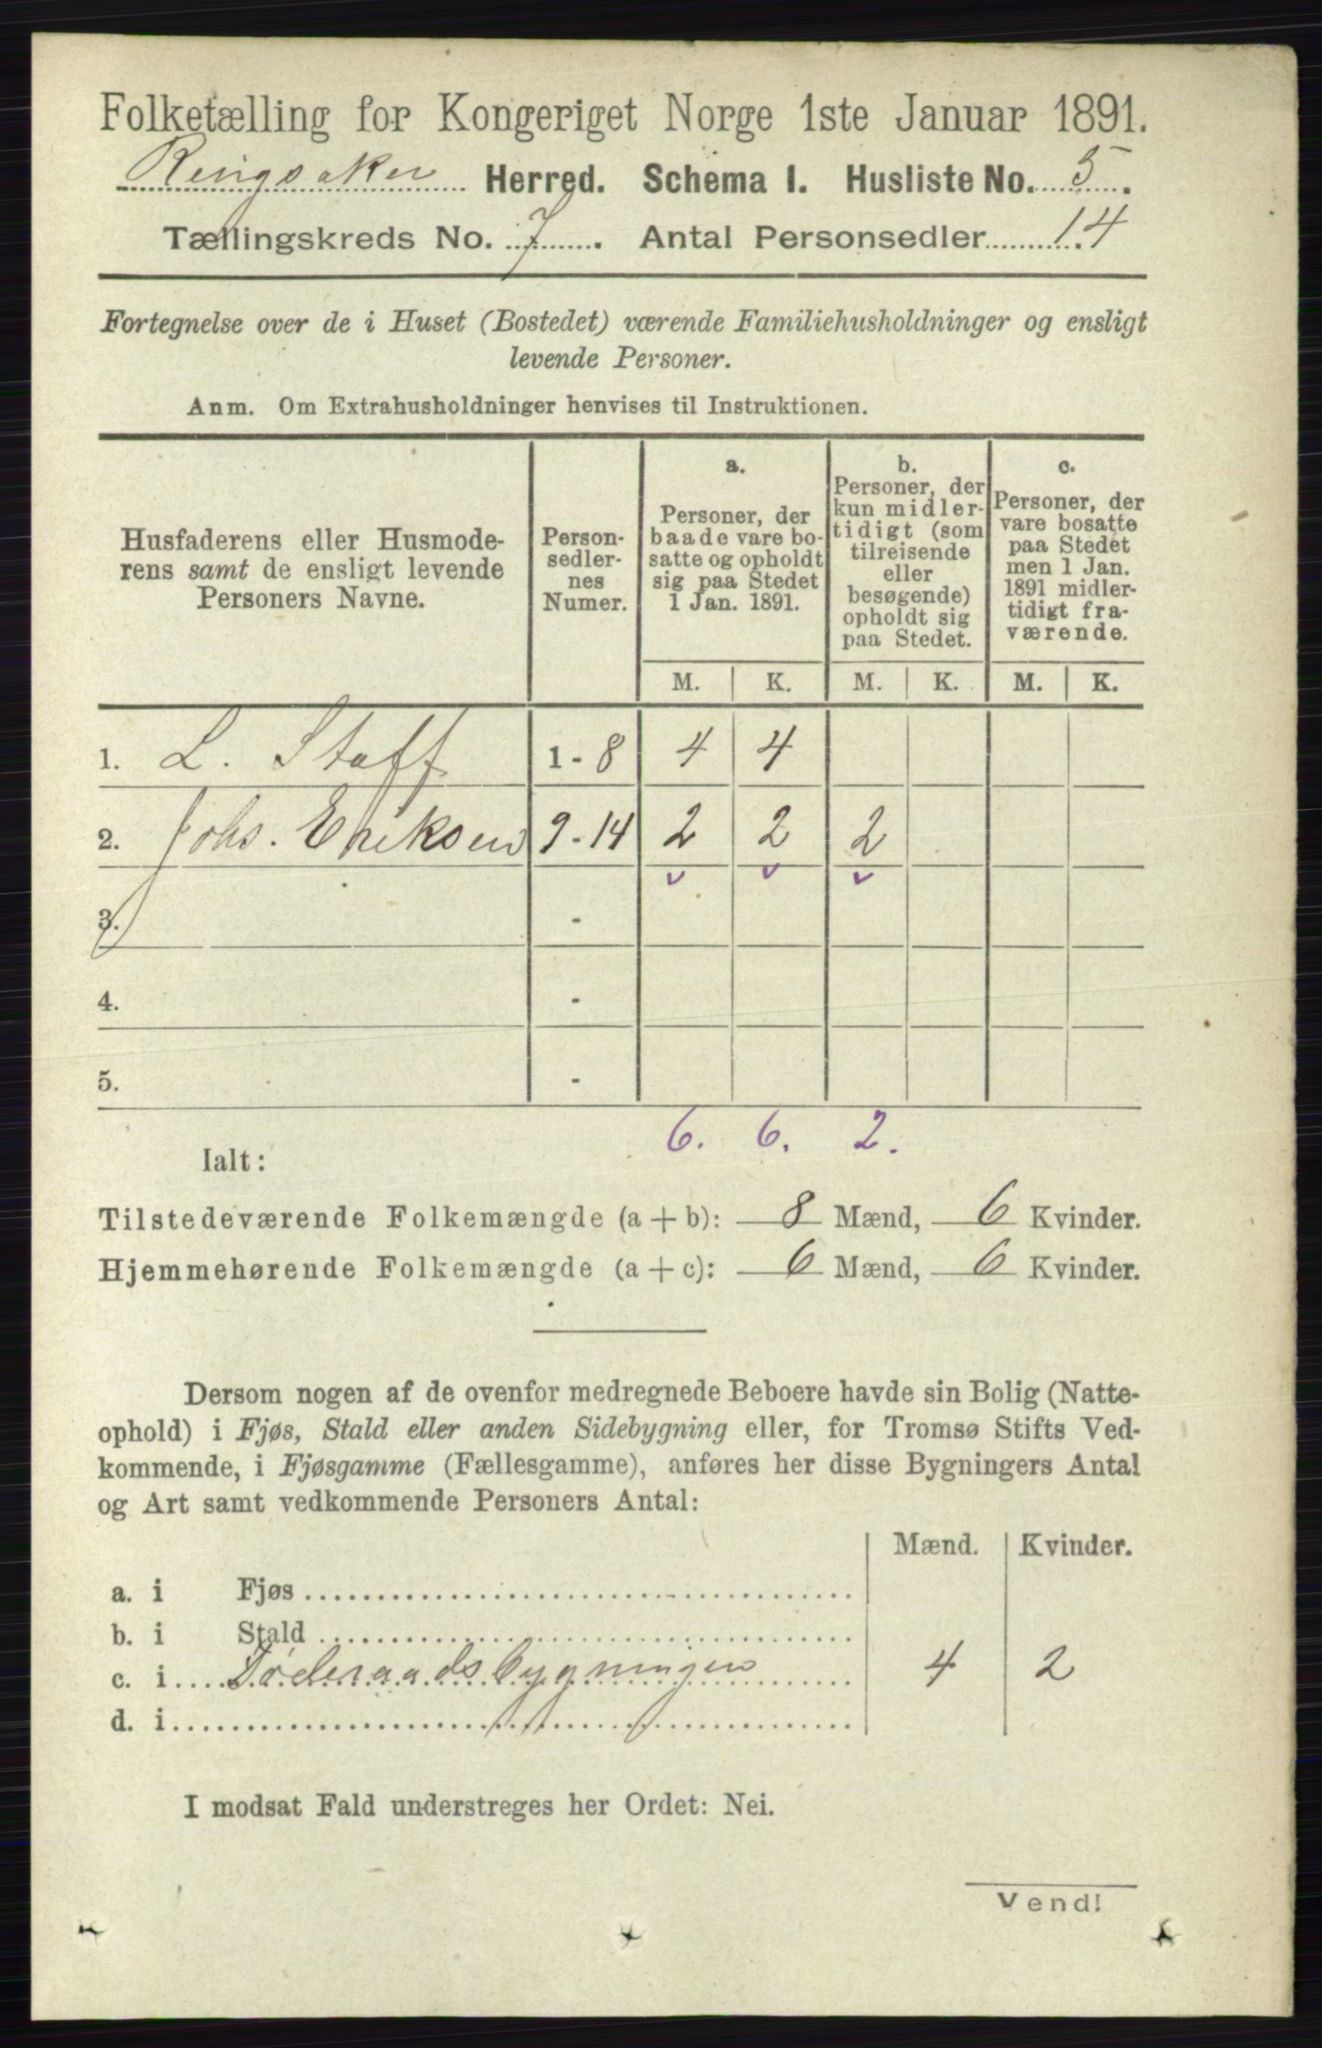 Folketælling for Kongeriget Norge 1ste Januar 1891.
Ringsaker Herred. Schema I. Husliste No. 5.
Tællingskreds No. 7. Antal Personsedler 14
Fortegnelse over de i Huset (Bostedet) værende Familiehusholdninger og ensligt
levende Personer.
Anm. Om Extrahusholdninger henvises til Instruktionen.
Husfaderens eller Husmode-
rens samt de ensligt levende
Personers Navne.
Person-
sedler-
nes
Numer.
a.
Personer, der
baade vare bo-
satte og opholdt
sig paa Stedet
1 Jan. 1891.
b.
Personer, der
kun midler-
tidigt (som
tilreisende
eller
besøgende)
opholdt sig
paa Stedet.
c.
Personer, der
vare bosatte
paa Stedet
men 1 Jan.
1891 midler-
tidigt fra-
værende.
M. K. M. K. M. K.
1. L. Staff 1-8 4 4
2. Johs. Eriksen 9-14 2 2 2
3. -
4. -
5. -
6. 6. 2.
Ialt:
Tilstedeværende Folkemængde (a + b): 8 Mænd, 6 Kvinder.
Hjemmehørende Folkemængde (a + c): 6 Mænd, 6 Kvinder.
Dersom nogen af de ovenfor medregnede Beboere havde sin Bolig (Natte-
ophold) i Fjøs, Stald eller anden Sidebygning eller, for Tromsø Stifts Ved-
kommende, i Fjøsgamme (Fællesgamme), anføres her disse Bygningers Antal
og Art samt vedkommende Personers Antal:
Mænd. Kvinder.
a. i Fjøs
b. i Stald
c. i Føderaadsbygningen 4 2
d. i
I modsat Fald understreges her Ordet: Nei.
Vend!